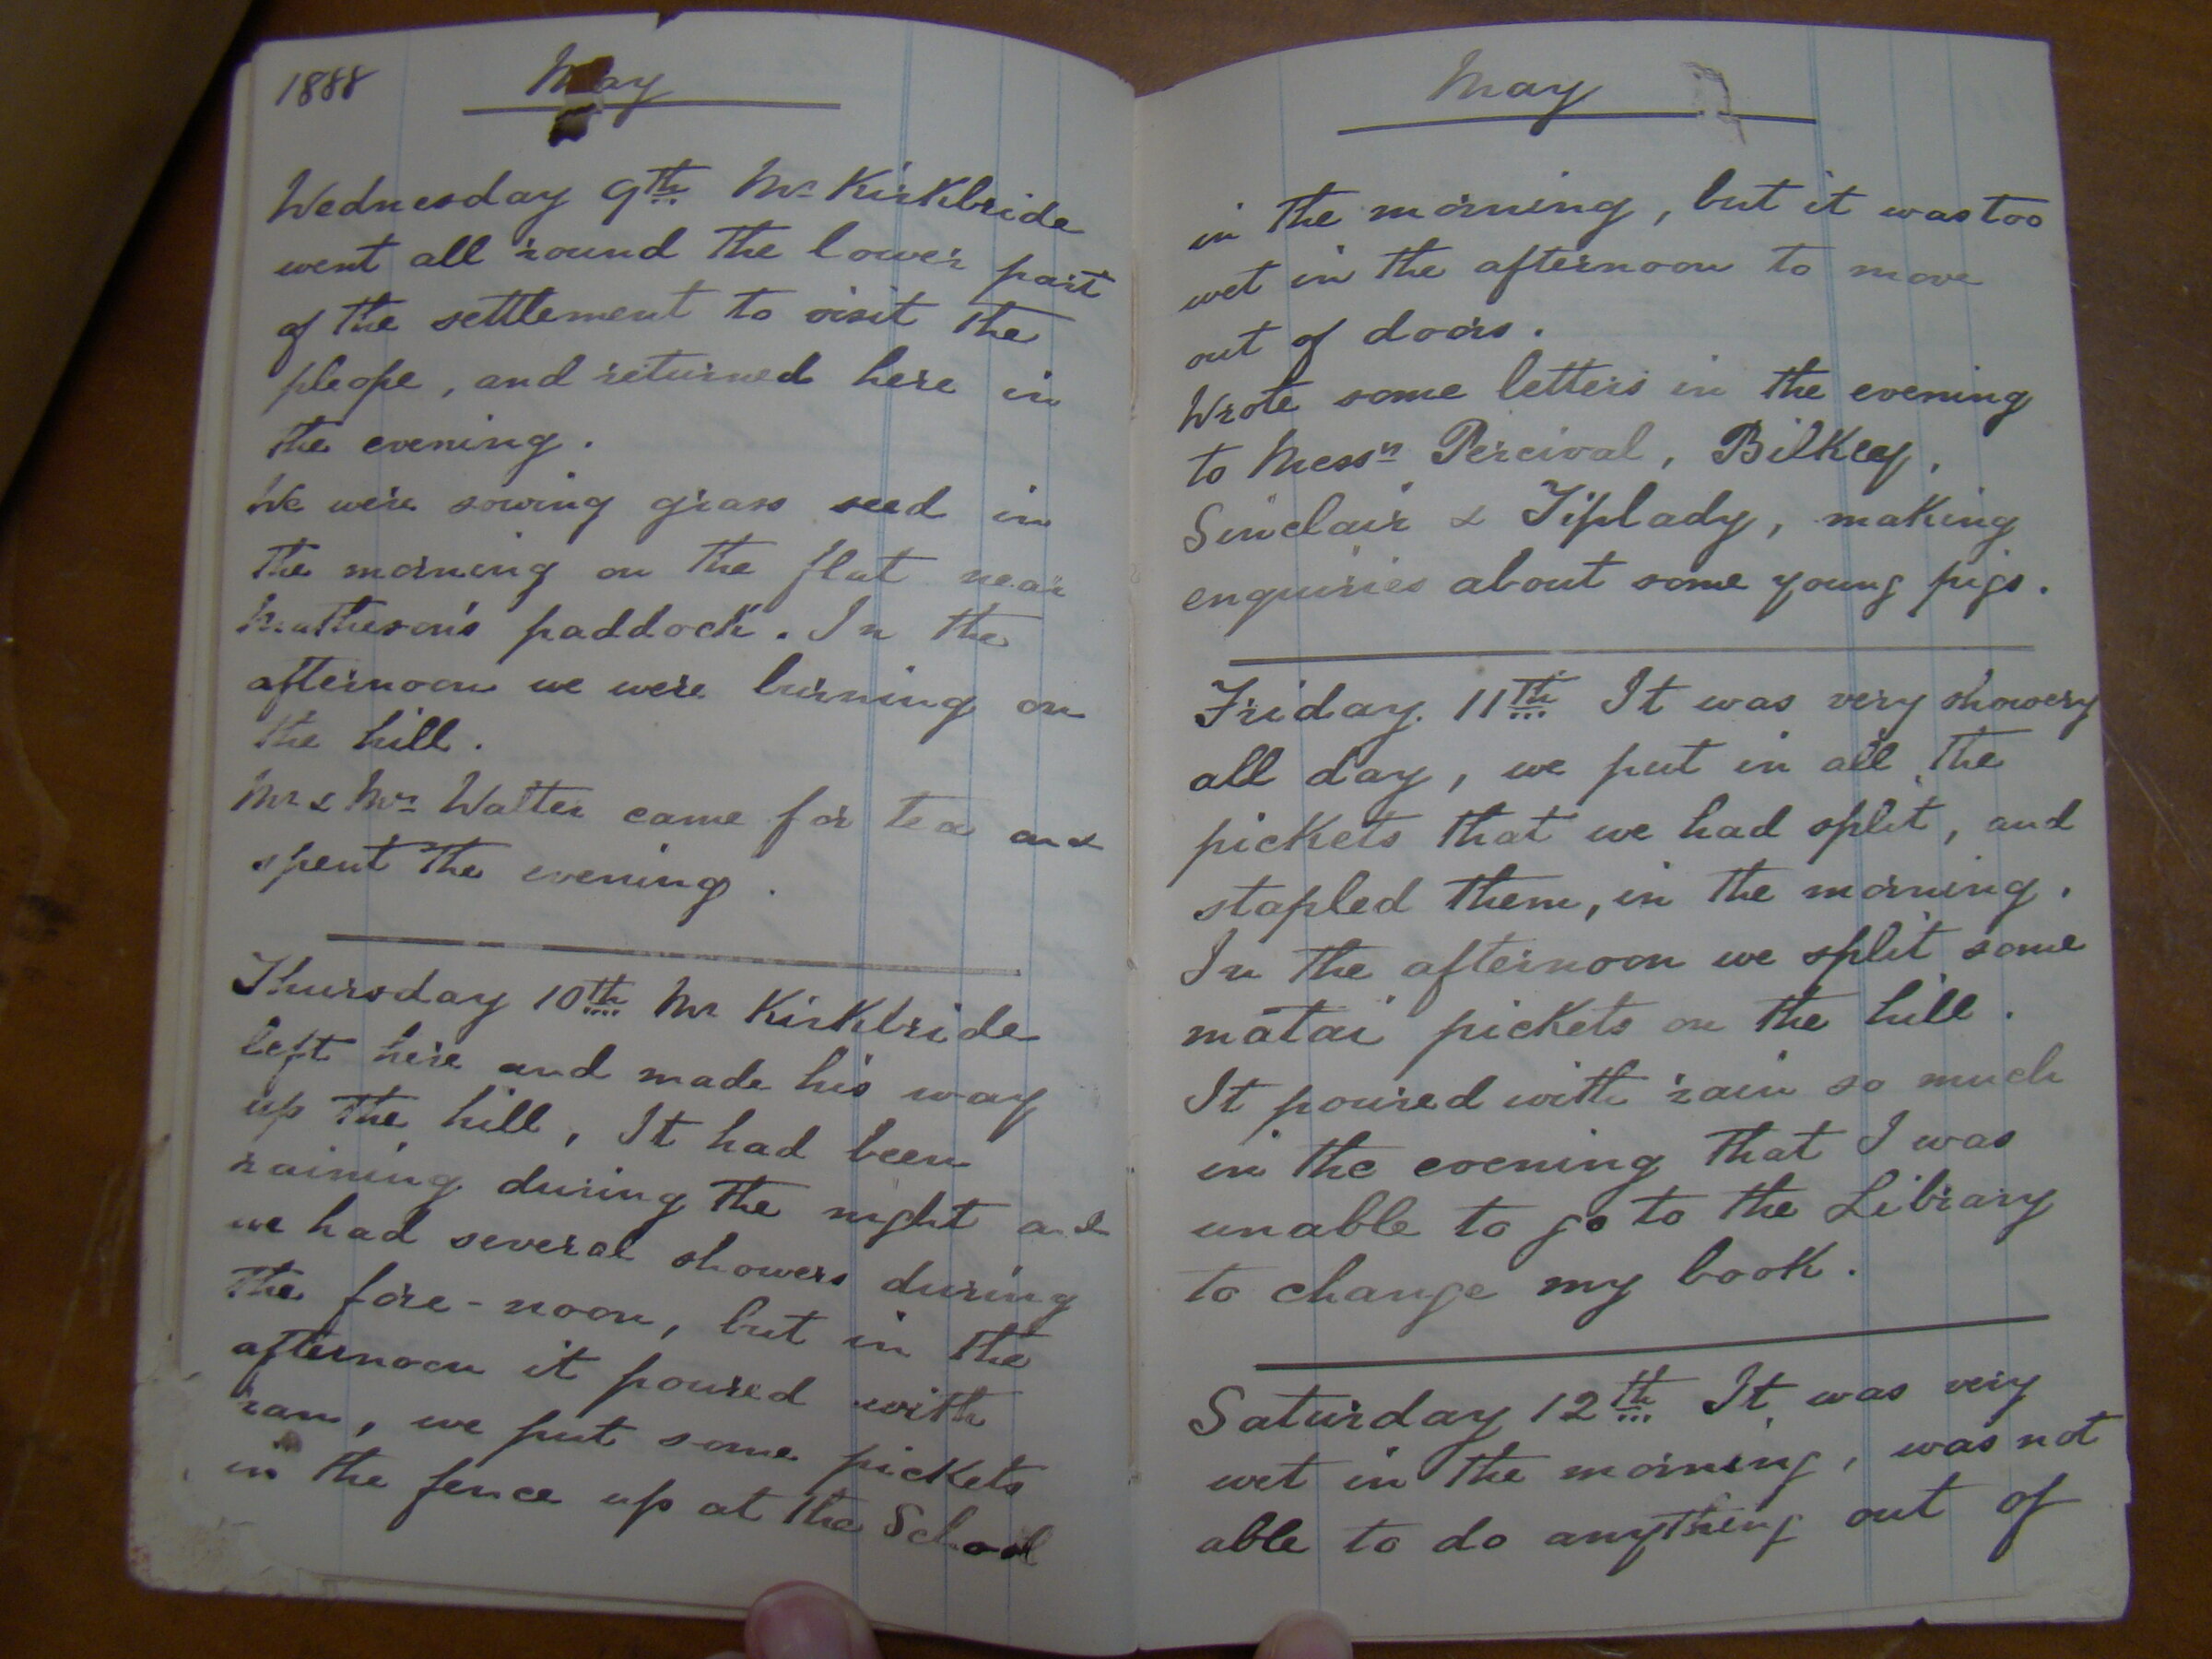 1888 May
Wednesday 9th Mr Kirkbride
went all round the lower part
of the settlement to visit the
pleope, and returned here in
the evening.
We were sowing grass seed in
the morning on the flat near
Matheson's paddock. In the
afternoon we were burning on
the hill.
Mr & Mrs Walter came for tea and
spent the evening.
Thursday 10th Mr Kirkbride
left here and made his way
up the hill, It had been
raining during the night and
we had several showers during
the fore-noon, but in the
afternoon it poured with
rain, we put some pickets
in the fence up at the School
May
in the morning, but it was too
wet in the afternoon to move
out of doors.
Wrote some letters in the evening
to Messrs Percival, Bilkey,
Sinclair & Tiplady, making
enquiries about some young pigs.
Friday. 11th It was very showery
all day, we put in all the
pickets that we had split, and
stapled them, in the morning.
In the afternoon we split some
matai pickets on the hill.
It poured with rain so much
in the evening that I was
unable to go to the Library
to change my book.
Saturday 12th It was very
wet in the morning, was not
able to do anything out of